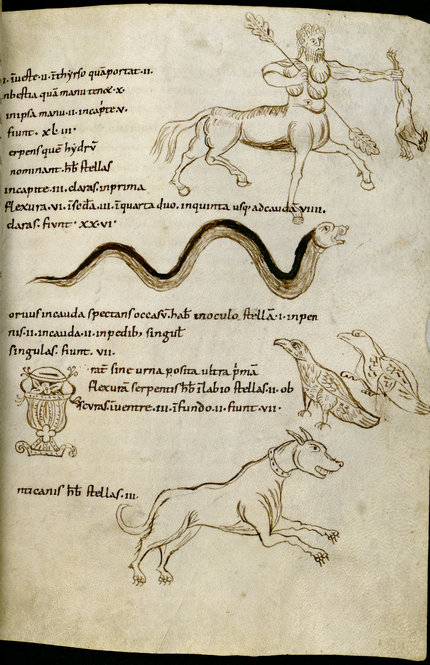 ı. īueſte·ıı·īthẏrſo quāportat·ıı·
nbeſtia quā manu tenet·x·
inipſa manu·ıı·incap̄te·v·
fiunt· xl·ııı·
erpenſ quē hẏdrū
nominant·hƀt ſtellaſ
incapite·ııı·claraſ·inprima
flexura·vı·īſcđa·ııı·īquarta duo, inquinta uſq; adcauda vıııı·
claraſ· fiunt·xx·vı·
oruuſ incauda ſpectanſ occaſū·haƀ inoculo ſtellā·ı·inpen
niſ·ıı·incauda·ıı·inpedib; ſinguł
ſingulaſ· fiunt· vıı·
rat̄ ſine urna poſita ultra p̄mā
flexurā ſerpentiſ hƀt īlabio ſtellaſ·ıı·ob
ſcuraſ īuentre·ııı·īfundo·ıı·fiunt·vıı·
nticaniſ hƀt ſtellaſ·ııı·